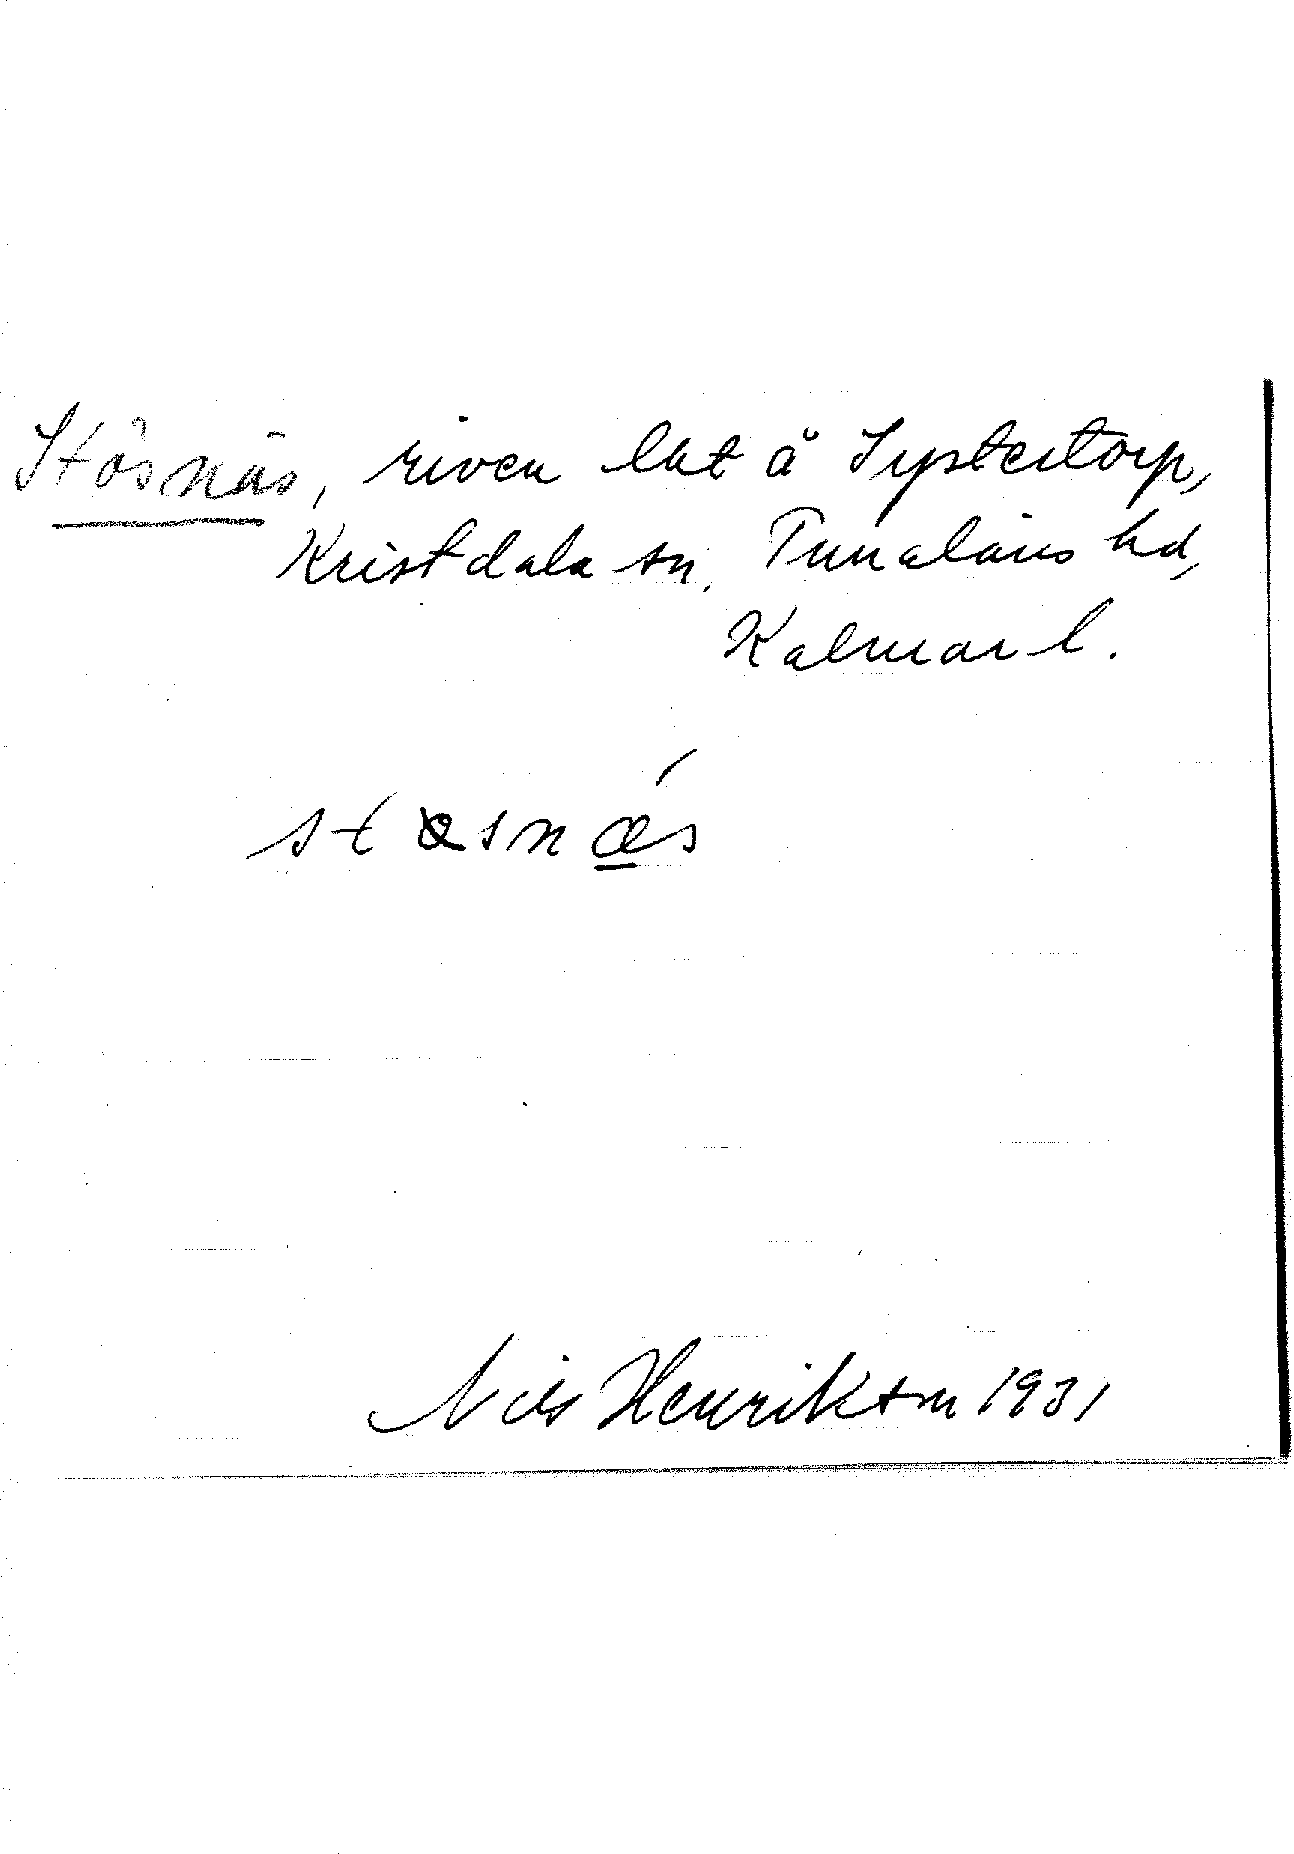 Stösnäs, riven lht å Systertorp,
Kristdala sn, Tunaläns hd,
Kalmar l.
Nils Henrikson 1931